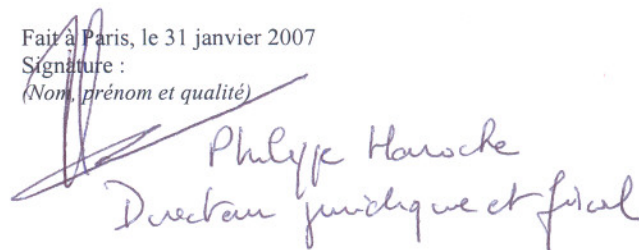 Fait à Paris, le 31 janvier 2007
Signature :
(Nom, prénom et qualité)
Philippe Haroche
Directeur juridique et fiscal